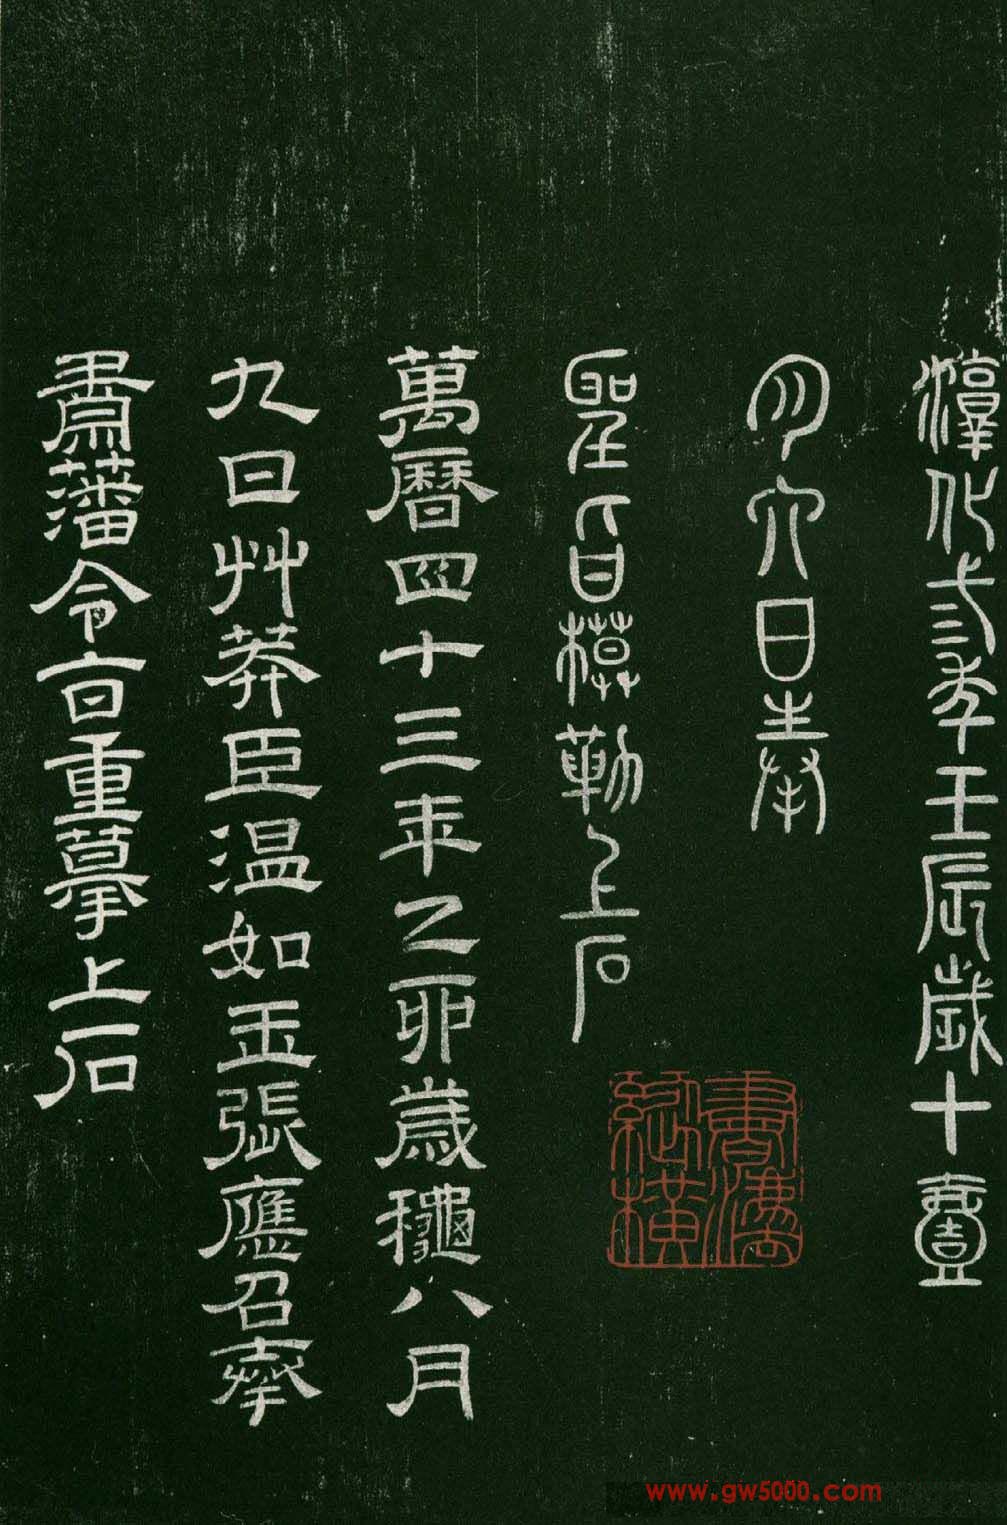 淳化弎年壬辰歲十壹
月六日生奉
聖旨模勒上石
萬曆四十三年乙卯歲龝八月
九日艸莽臣溫如玉張應召奉
肅藩令旨重摹上石
書瀆
縱橫
www.gw5000.com